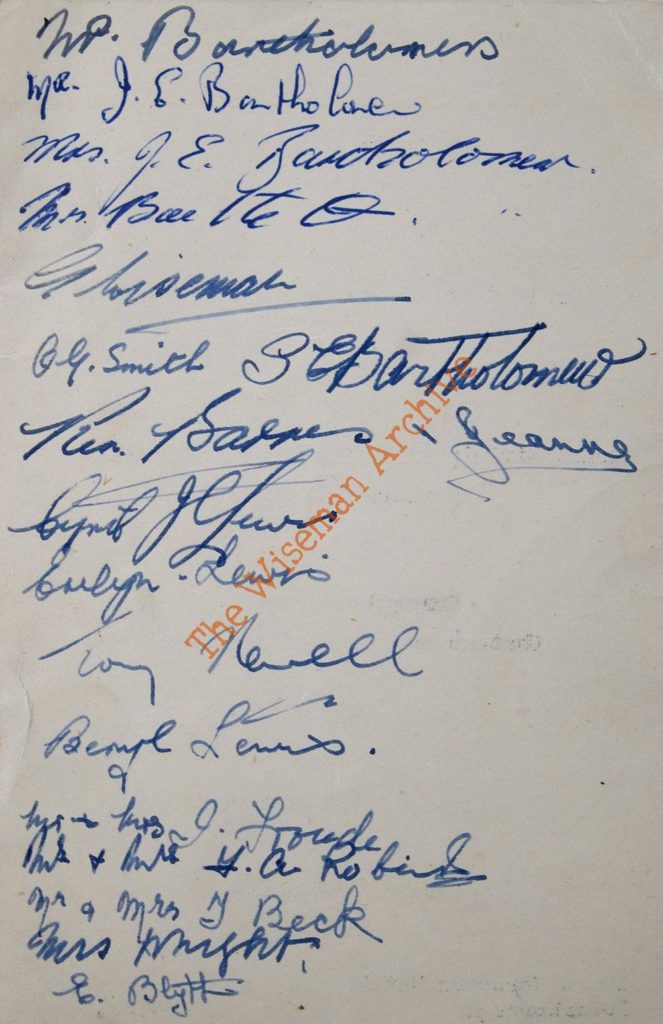 W. Bartholomew
Mr. J. E. Bartholomew
Mrs. J. E. Bartholomew.
Mrs. Bartlett.
Wiseman
G. Smith S E Bartholomew
Ken. Barnes & Jeanne
Cyril J Lewis
Evelyn. Lewis
Tony Newell
Beryl Lewis.
&
Mr & Mrs J. Froude
Mr & Mrs A. Robins
Mr & Mrs J Beck
Mrs Wright.
E. Blyth
The Wiseman Archive